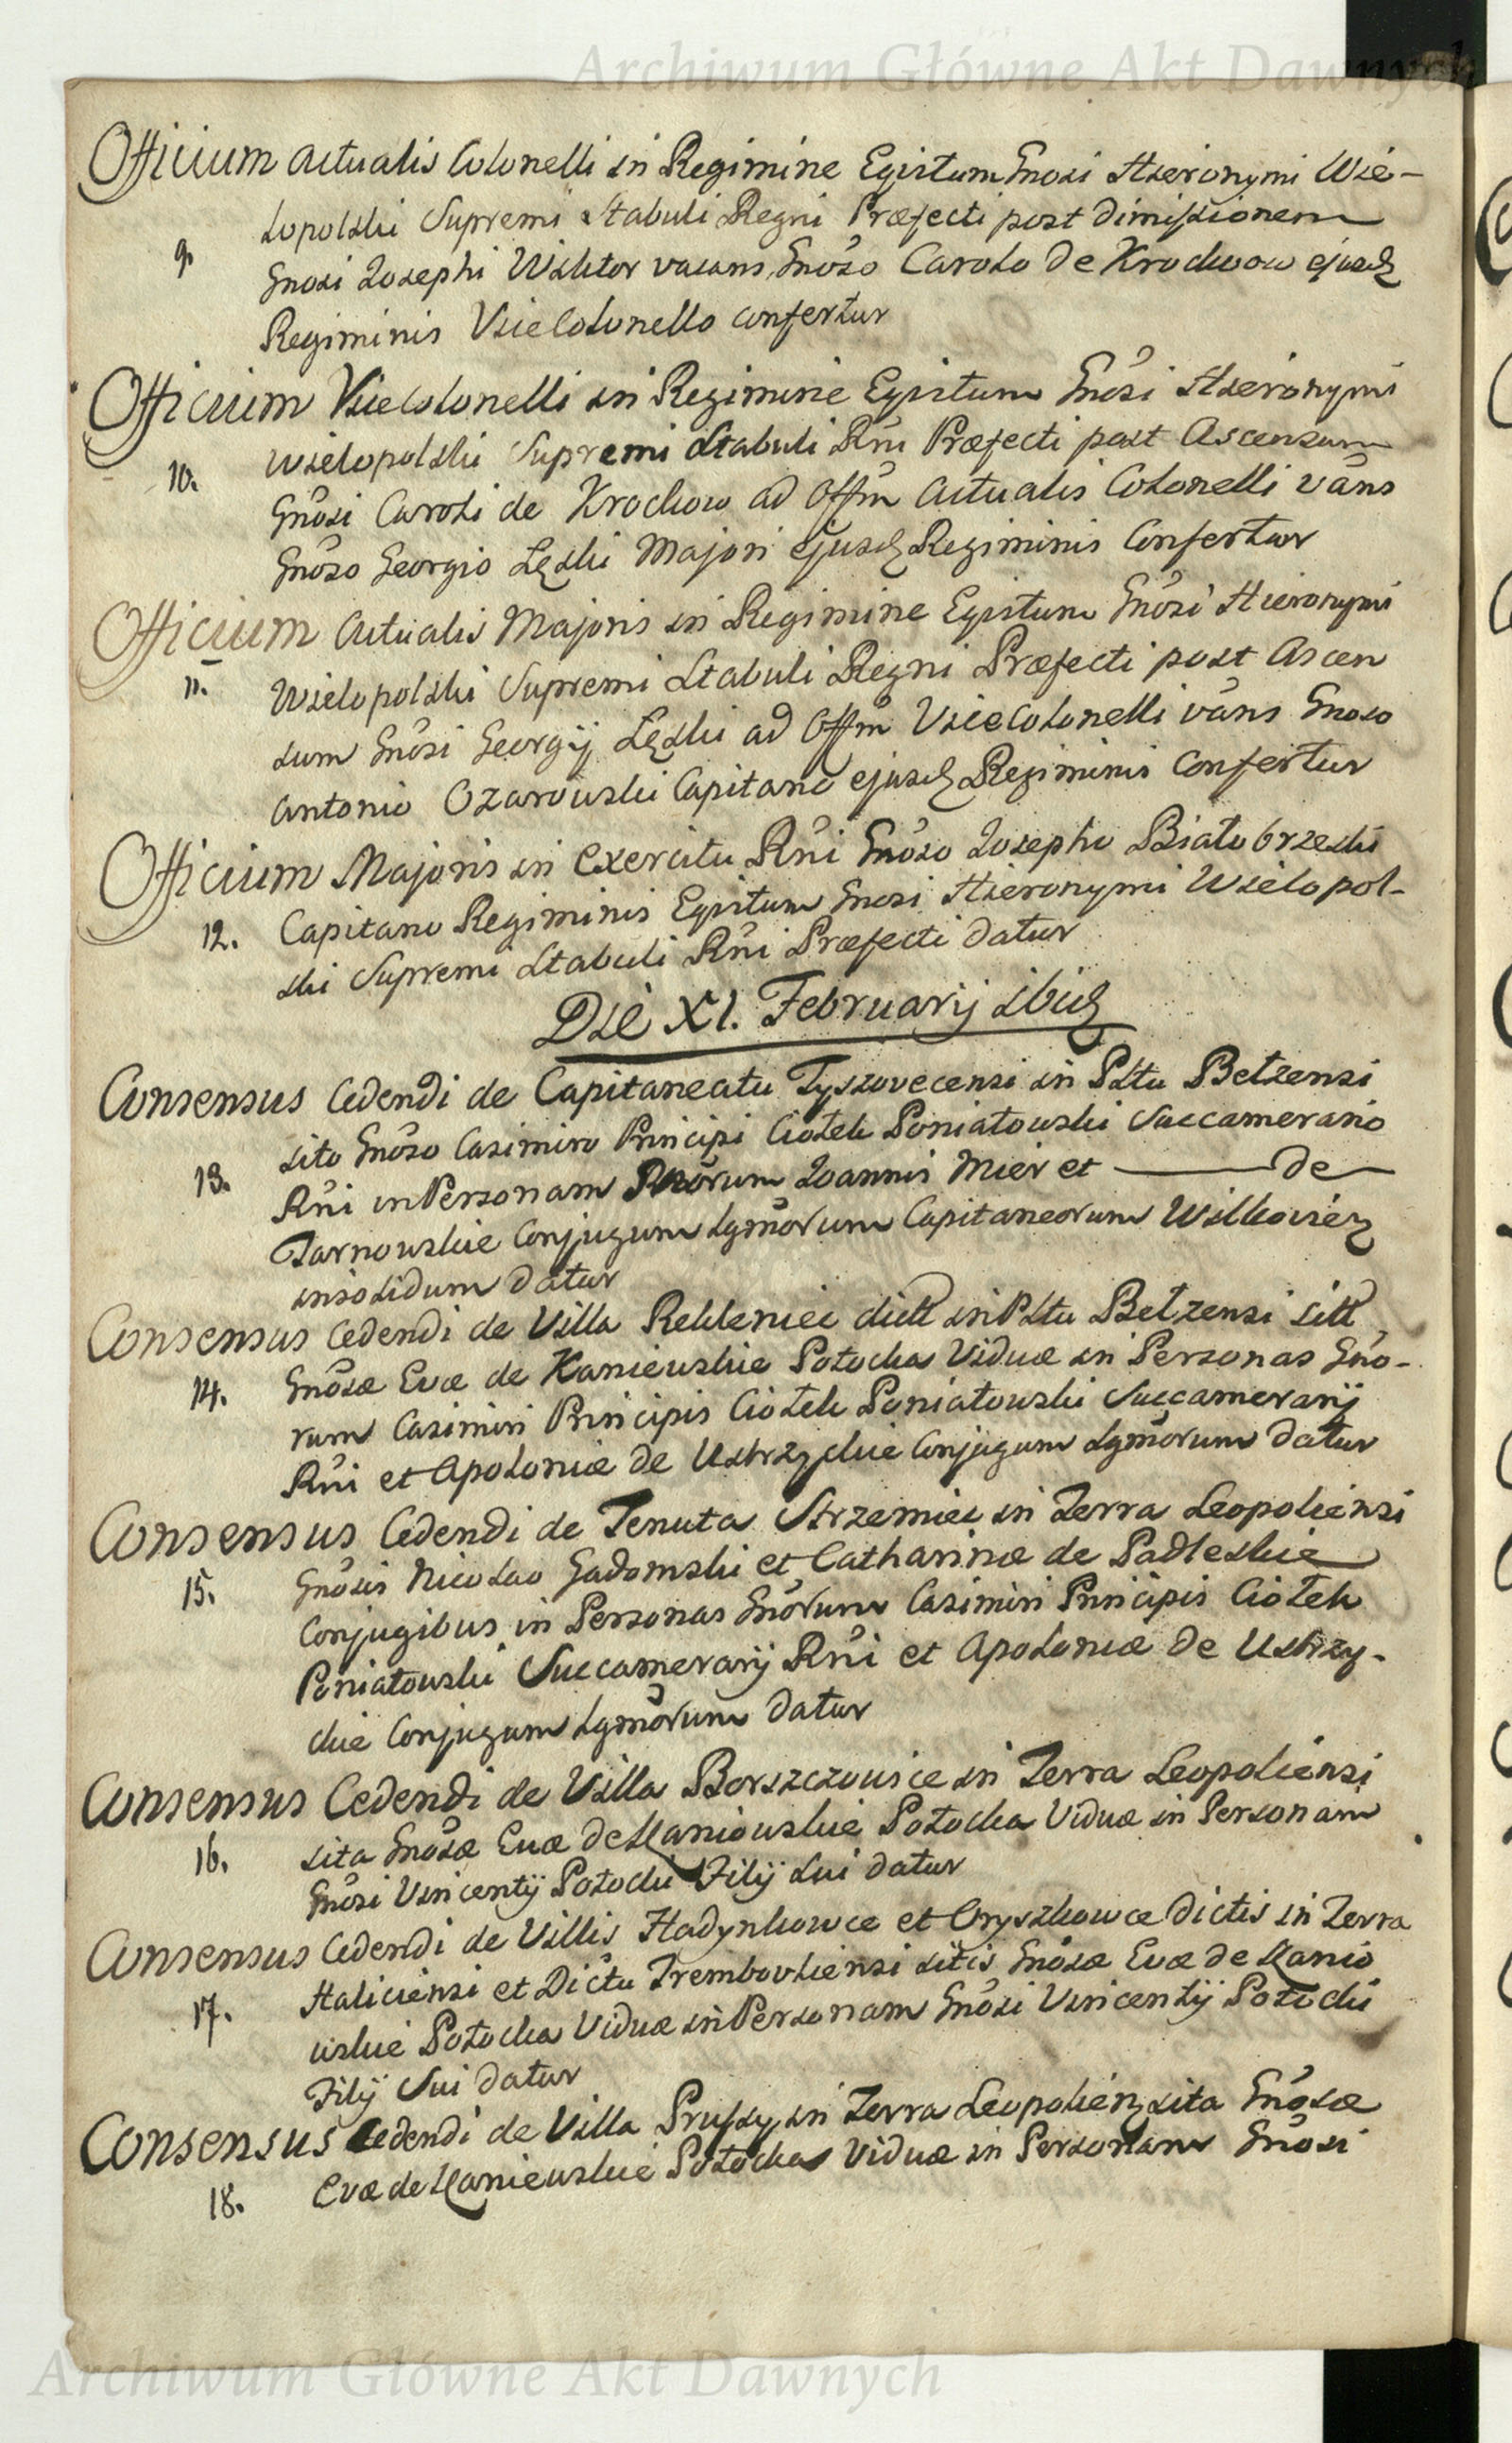 Archiwum Główne Akt Dawnych
Officium actualis Colonelli in Regimine Eqvitum Gnosi Hieronymi Wie-
lopolski Supremi Stabuli Regni Præfecti post dimissionem
9. Gnosi Josephi Wiktor vacans, Gnoso Carolo de Krockow ejusd
Regiminis ViceColonello confertur
Officium Vicecolonelli in Regimine Eqvitum Gnosi Hieronymi
Wielopolski Supremi Stabuli Rni Præfecti post Ascensum
10. Gnosi Caroli de Krockow ad Offm Actualis Colonelli vans
Gnoso Georgio Lęski Majori ejusd Regiminis Confertur
Officium Actualis Majoris in Regimine Eqvitum Gnosi Hieronymi
11. Wielopolski Supremi Stabuli Regni Præfecti post Ascen
sum Gnosi Georgij Lęski ad Offm ViceColonelli vans Gnoso
Antonio Ozarowski Capitano ejusd Regiminis Confertur
Officium Majoris in Exercitu Rni Gnoso Josepho Białobrzeski
12. Capitano Regiminis Eqvitum Gnosi Hieronymi Wielopol-
ski Supremi Stabuli Rni Præfecti datur
Die XI. Februarij ibid
Consensus Cedendi de Capitaneatu Tyszovecensi in Pltu Bełzensi
sito Gnoso Casimiro Principi Ciołek Poniatowski Succamerario
13. Rni in Personam Gnorum Joannis Mier et — de
Tarnowskie Conjugum Lgmorum Capitaneorum Wilkovien
insolidum datur
Consensus Cedendi de Villa Rekleniec dict in Pltu Bełzensi sitt
14. Gnosæ Evæ de Kaniewskie Potocka Viduæ in Personas Gno-
rum Casimiri Principis Ciołek Poniatowski Succamerarij
Rni et Apoloniæ de Ustrzyckie Conjugum Lgmorum datur
Consensus Cedendi de Tenuta Strzemiec in Terra Leopoliensi
15. Gnosis Nicolao Gadomski et Catharinæ de Padleskie
Conjugibus in Personas Gnorum Casimiri Principis Ciołek
Poniatowski Succamerarij Rni et Apoloniæ de Ustrzy-
ckie Conjugum Lgmorum datur
Consensus Cedendi de Villa Borszczowice in Terra Leopoliensi
16. sita Gnosæ Evæ de Kaniowskie Potocka Viduæ in Personam
Gnosi Vincentij Potocki Filij sui datur
Consensus Cedendi de Villis Hadynkowce et Oryszkowce dictis in Terra
17. Haliciensi et Dictu Trembovliensi sitis Gnosæ Evæ de Kanio
wskie Potocka Viduæ in Personam Gnosi Vincentij Potocki
Filij Sui datur
Consensus Cedendi de Villa Prussy in Terra Leopolien sita Gnosæ
18. Evæ de Kaniewskie Potocka Viduæ in Personam Gnosi
Archiwum Główne Akt Dawnych